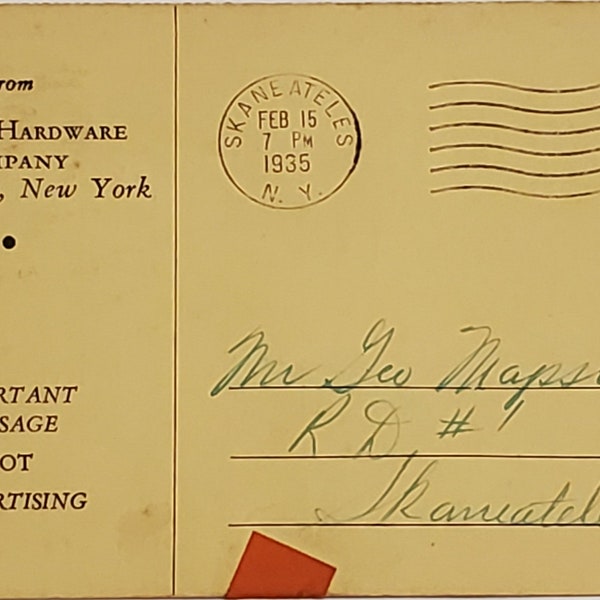 rom
HARDWARE
MPANY
, New York
RTANT
SAGE
OT
RTISING
SKANEATELES
FEB 15
7 PM
1935
N. Y.
Mr Geo Maps
R D, # 1
Skaneatel